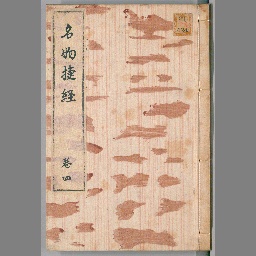 名物捷経 巻四